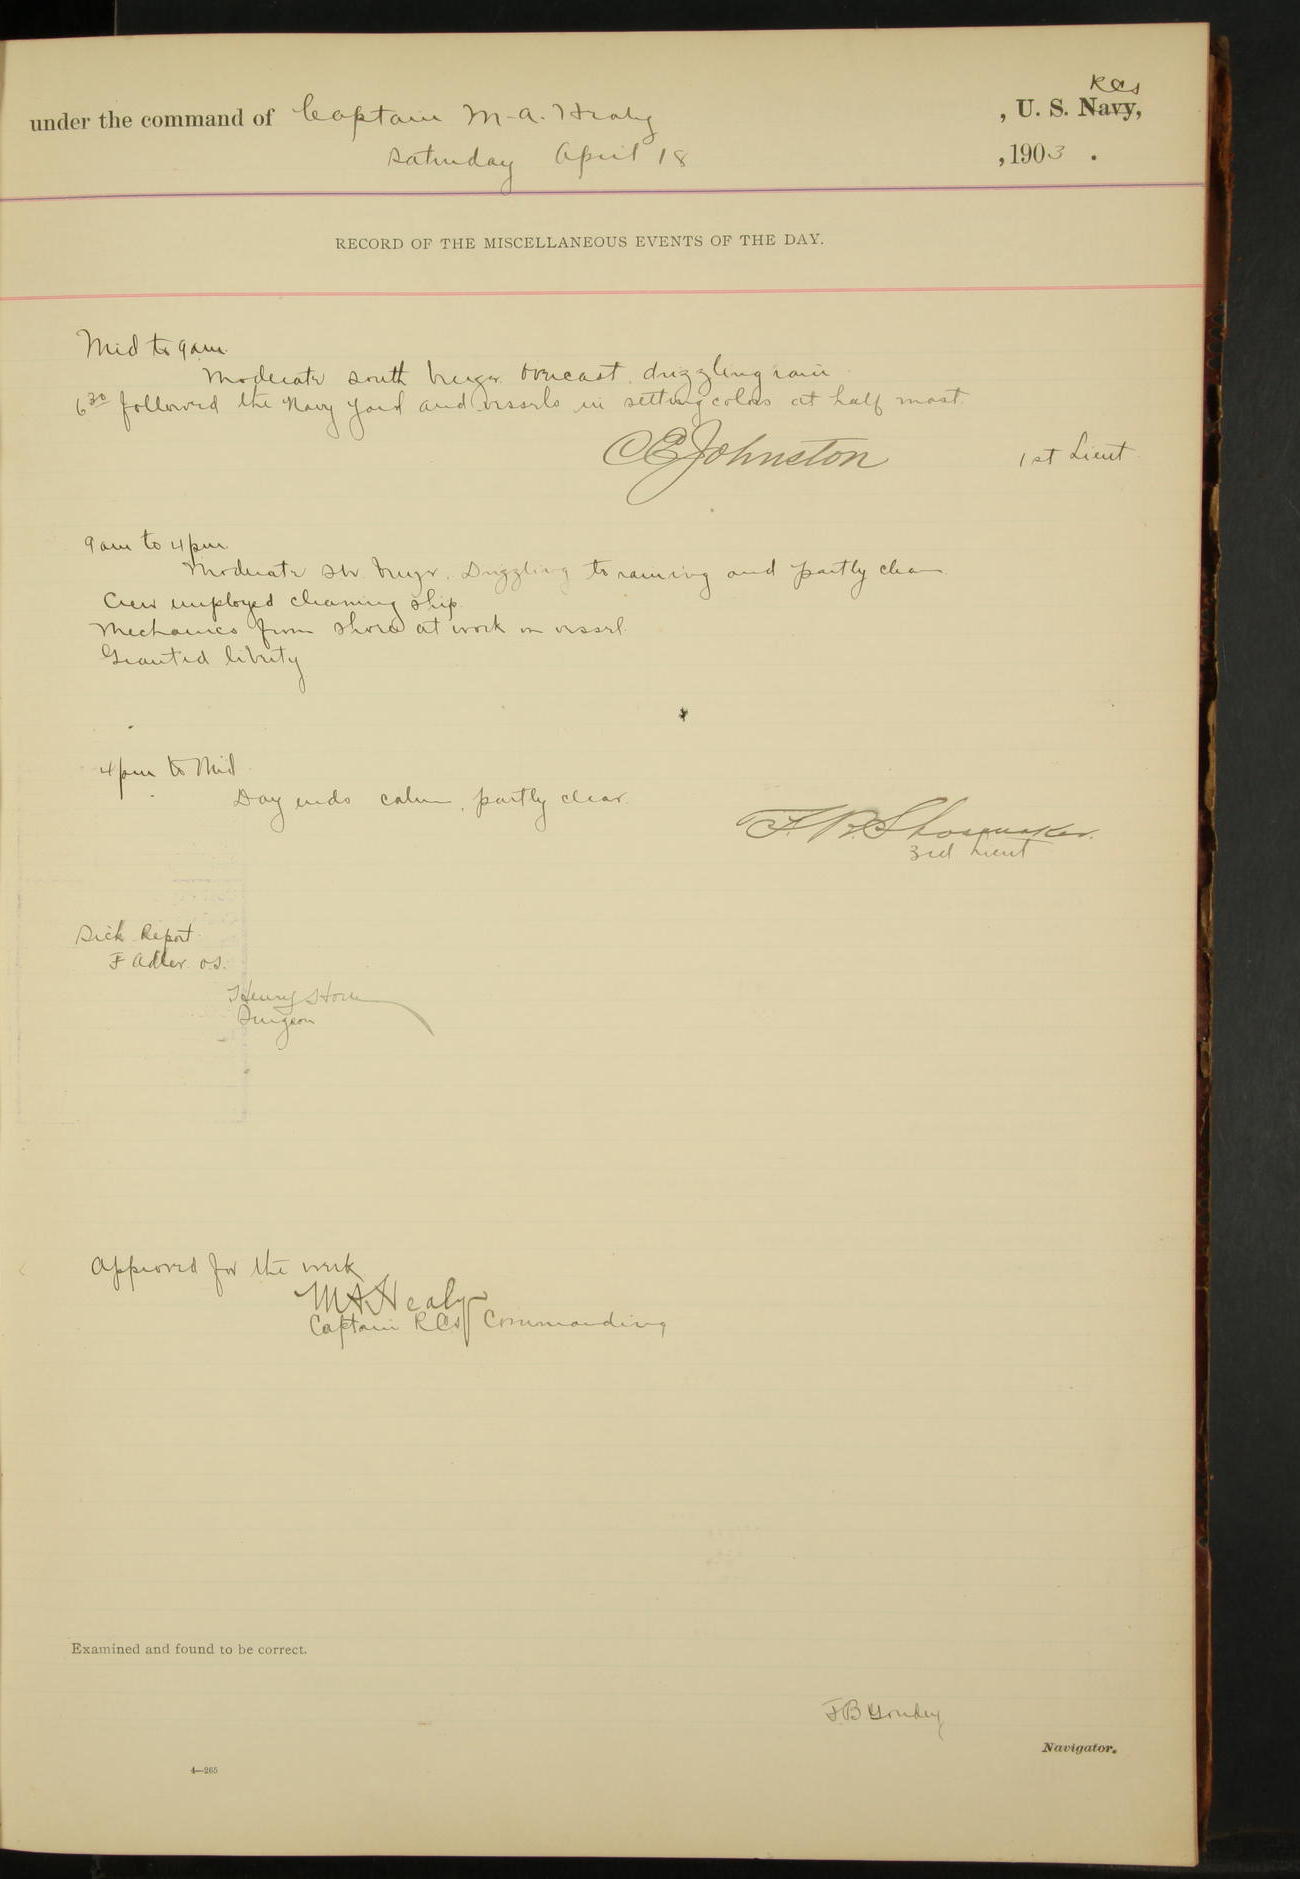 under the command of Captain M. A. Healy, U. S. Navy, RCS
Saturday April 18, 1903.
RECORD OF THE MISCELLANEOUS EVENTS OF THE DAY.
Mid to 9am
Moderate south breeze overcast, drizzling rain
6 30 followed the Navy Yard and vessels in setting colors at half mast.
C E Johnston 1st Lieut
9am to 4pm
Moderate SW. breeze. Drizzling to raining and partly clear
Crew employed cleaning ship.
Mechanics from shore at work on vessel.
Granted liberty
4pm to Mid
Day ends calm, partly clear.
F. B. Shoemaker.
3rd Lieut
Sick Report
F Adler O.S.
Henry Horn
Surgeon
Approved for the week
M A Healy
Captain RCS Commanding
Examined and found to be correct.
Navigator.
4—265